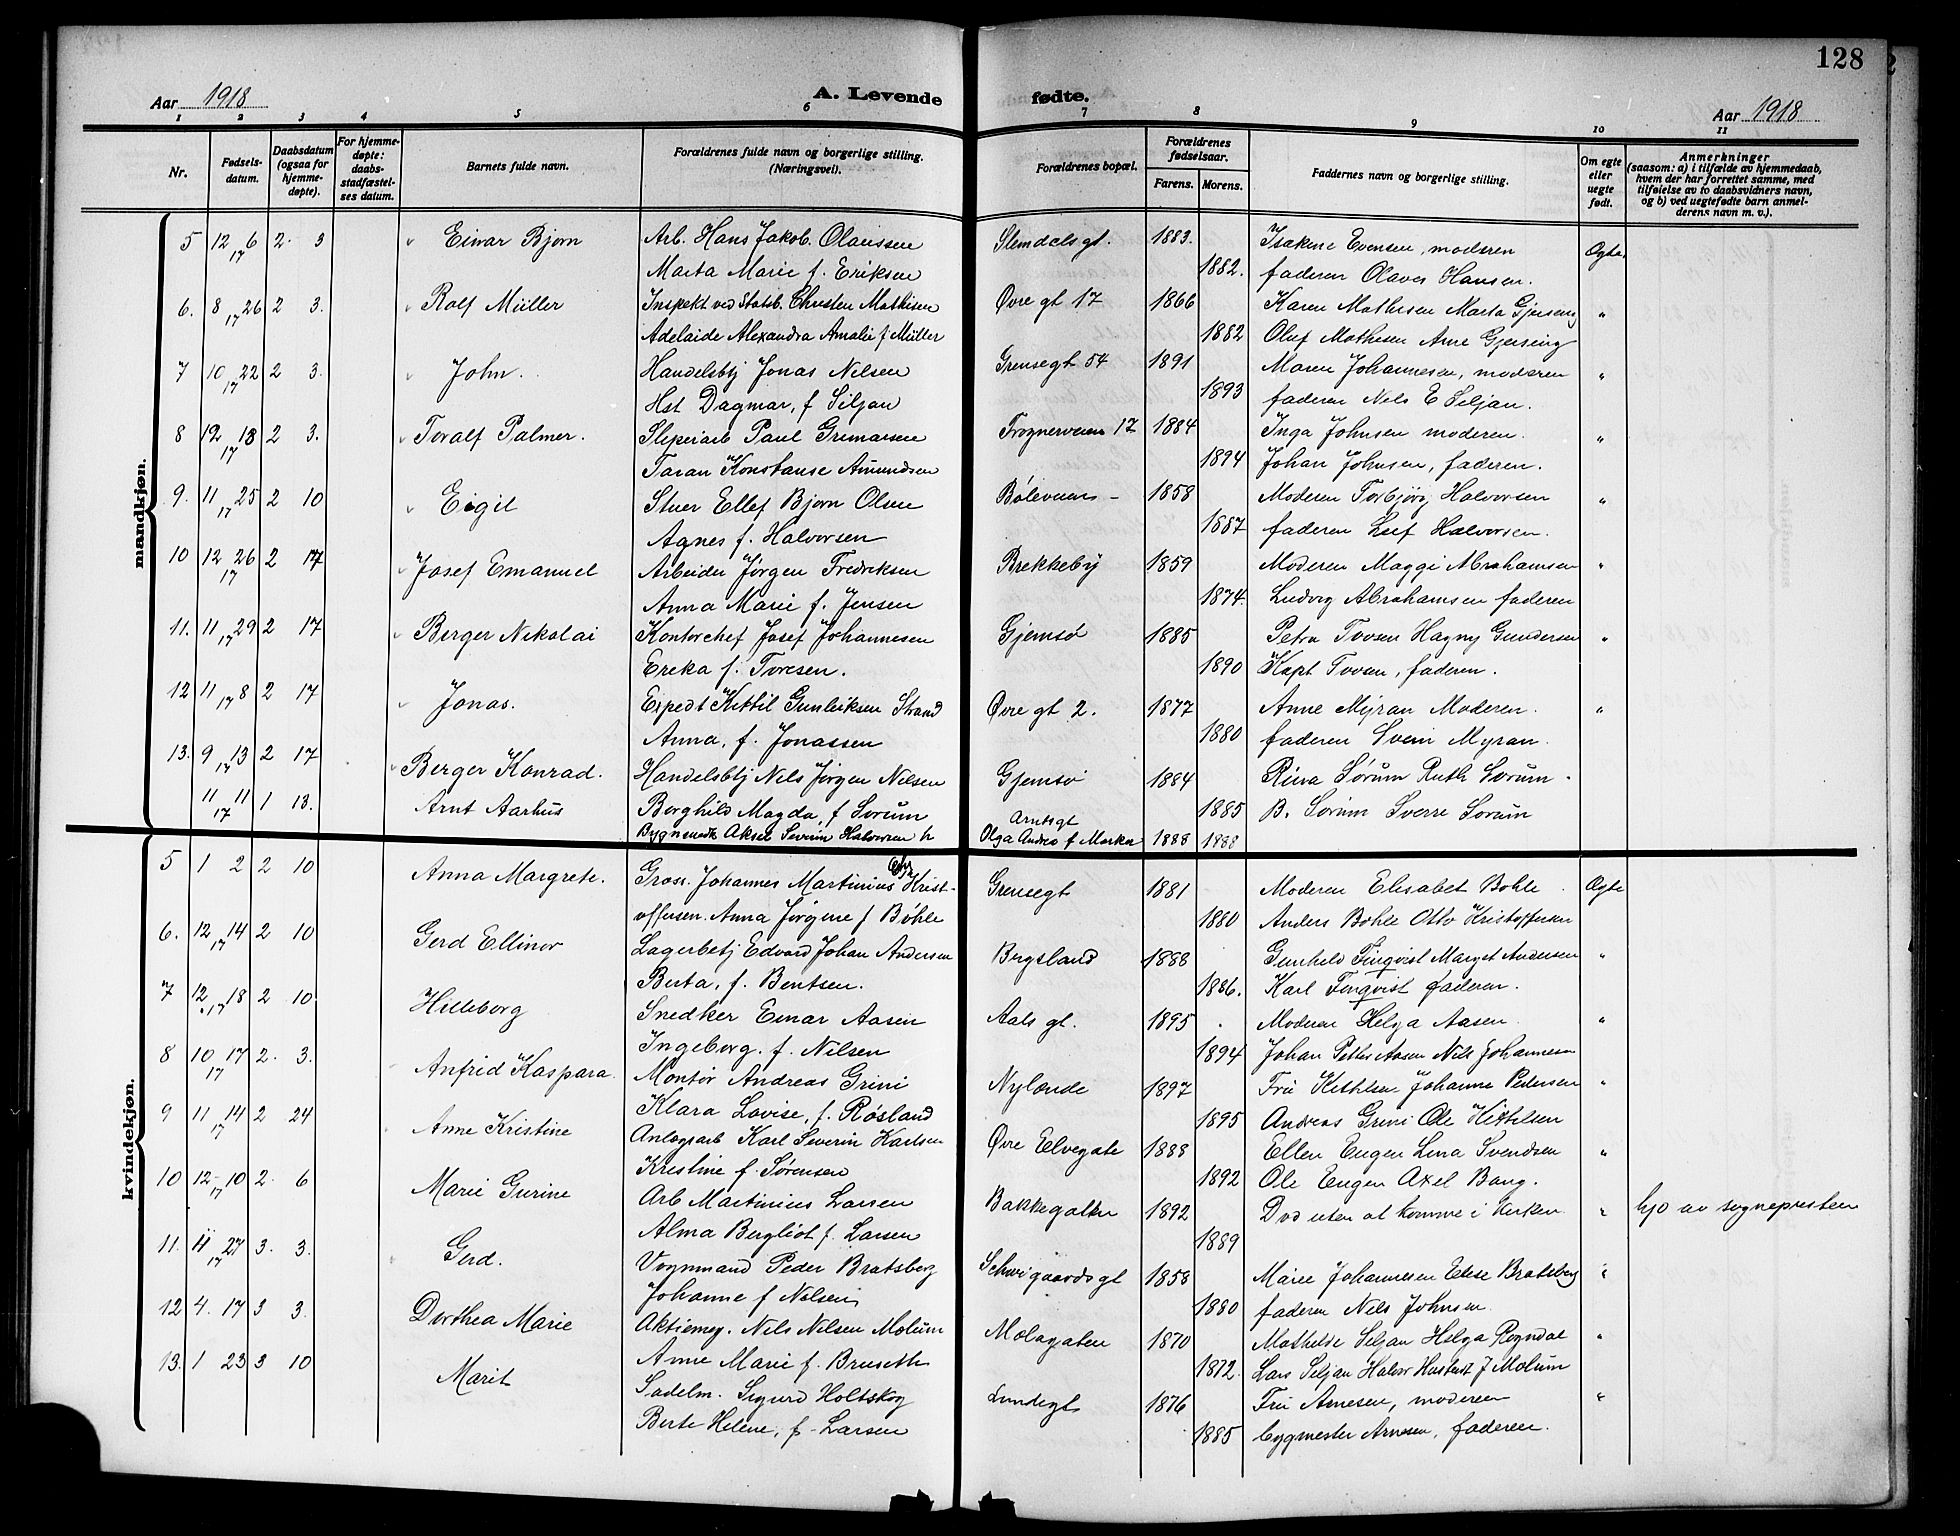 128
Aar 1918
A. Levende fødte.
Aar 1918
1 2 3 4 5 6 7 8 9 10 11
Nr.
Fødselsdatum.
Daabsdatum (ogsaa for hjemmedøpte).
For hjemmedøpte: daabsstadfæstelses datum.
Barnets fulde navn.
Forældrenes fulde navn og borgerlige stilling. (Næringsvei).
Forældrenes bopæl.
Forældrenes fødselsaar.
Farens. Morens.
Faddernes navn og borgerlige stilling.
Om egte eller uegte født.
Anmerkninger
(saasom: a) i tilfælde av hjemmedaab,
hvem der har forrettet samme, med
tilføielse av to daabsvidners navn,
og b) ved uegtefødte barn anmelderens navn m. v.).
mandkjøn.
5 12 6 17 2. 3 Einar Bjorn Arb. Hans Jakob Olaussen Slemdalsgt. 1883. Isakine Evensen, moderen Egte
Marta Marie f. Eriksen 1882. faderen Olaves Hansen.
6. 8 26 17 2 3. Rolf Müller Inspekt ved Statsb. Christen Mathisen Øvre gt 17 1866 Karen Mathesen Marta Gjersing "
Adelaide Alexandra Amalie f Müller 1882 Oluf Mathesen Arne Gjersing
7 10 22 17 2 3. John. Handelsbtj Jonas Nilsen Grensegt 54 1891 Maren Johannesen, moderen "
Hst Dagmar, f Siljan 1893 faderen Nils E Seljan.
8 12 13 17 2 3. Toralf Palmer. Sliperiarb Paul Gunnarsen Frognerveien 17 1884 Inga Johnsen moderen. "
Taran Konstanse Amundsen 1894 Johan Johnsen, faderen.
9. 11 25 17 2 10 Eigil Stuer Ellef Bjorn Olsen Bøleveien 1858 Moderen Torbjörg Halvorsen "
Agnes f. Halvorsen 1887 faderen Leif Halvorsen.
10 12 26 17 2 17 Josef Emanuel Arbeider Jørgen Fredriksen Brekkeby 1859 Moderen Maggi Abrahamsen "
Anna Marie f. Jensen 1874. Ludvig Abrahamsen faderen
11. 11 29 17 2 17 Berger Nikolai Kontorchef Josef Johannesen Gjemsø 1885 Petra Tovsen Hagny Gundersen "
Ereka f. Toresen. 1890 Kapt Tovsen, faderen.
12 11 8 17 2 17 Jonas. Expedt Kittil Gunleiksen Strand Øvre gt 2. 1877 Anne Myran Moderen. "
Anna, f. Jonassen 1880 faderen Svein Myran.
13. 9 13 17 2 17 Berger Konrad. Handelsbtj Nils Jørgen Nilsen Gjemsø 1884 Rina Sörum Ruth Sorum.
Borghild Magda, f Sorum 1885 B. Sorum Sverre Sorum
11 11 17 1 13. Arnt Aarhus Bygnsnedk Aksel Severin Halvorsen h Arntsgt
Olga Andrea f Marker 1888 1888
kvindekjøn.
5 1 2 2 10 Anna Margrete. Gross. Johannes Martinius Krist- Grensegt 1881 Moderen Elisabet Bohle. Egte
offersen. Anna Jørgine f Bøhle 1880 Anders Bohle Otto Kristoffersen
6. 12 14 17 2 10 Gerd Ellinor Lagerbetj Edvard Johan Andersen Brysland 1888 Gunhild Finqvist Margit Andersen "
Berta, f. Bentsen. 1886. Karl Finqvist faderen.
7 12 18 17 2 10 Hilleborg Snedker Einar Aasen Aals gt. 1895 Moderen Helga Aasen "
Ingeborg. f. Nilsen 1894 Johan Petter Aasen Nils Johannesen
8 10 17 17 2. 3. Anfrid Kaspara. Montör Andreas Grini Nylænde 1897 Fru Kittilsen Johanne Pedersen "
Klara Lovise, f. Røsland 1895 Andreas Grini Ole Kittilsen
9 11 14 17 2 24 Anne Kristine Anlægsarb Karl Severin Karlsen Øvre Elvegate 1888 Ellen Eugen Lina Svendsen "
Kristine f. Sørensen 1892 Ole Eugen Axel Bang.
10 12 10 17 2. 6 Marie Gurine Arb Martinius Larsen Bakkegaten 1892 Død uten at komme i Kirken. " hjd av sognepresten
Alma Bergliot f. Larsen 1889
11. 11 27 17 3. 3. Gerd. Vognmand Peder Bratsberg Schweigaardsgt 1858 Marie Johannesen Elise Bratsberg "
Johanne f Nilsen 1880 faderen Nils Johnsen.
12 4. 17 3 3. Dorthea Marie Aktiemeg. Nils Nilsen Molum Molagaten 1870 Mathilde Seljan Helga Rogndal "
Anne Marie f. Bruseth 1872. Lars Seljan Halvor J Molum
13. 1 23 3 10 Marit Sadelm. Sigurd Holtskog Lundegt 1876 Fru Arnesen, moderen "
Berte Helene, f. Larsen 1885 bygmester Arnesen, faderen.